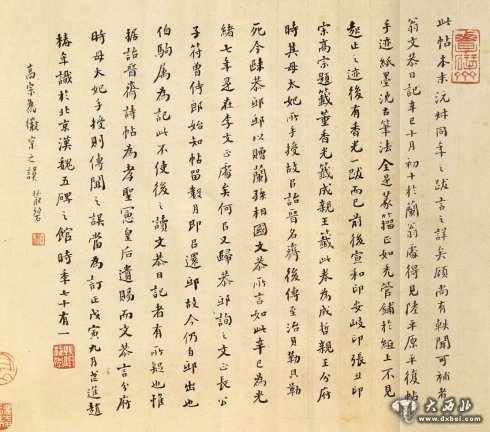 此帖本末沅叔同年之跋言之詳矣顧尚有軼聞可補者
翁文恭日記辛巳十月初十於蘭翁處得見陸平原平復帖
手迹紙墨沈古筆法全是篆籀正如禿管鋪於紙上不見
起止之迹後有香光一跋而已前後宣和印安岐印張丑印
宋高宗題籤董香光籤成親王籤此卷為成哲親王分府
時其母太妃所手授故以詒晉名齋後傳至治貝勒貝勒
死今歸恭邸邸以贈蘭孫相國文恭所言如此辛巳為光
緒七年是在李文正處矣何以又歸恭邸詢之文正長公
子符曾侍郎始知帖留數月即以還邸故今仍自邸出也
伯駒属為記此不使後之讀文恭日記者有所疑也惟
據詒晉齋詩帖為孝聖憲皇后遺賜而文恭言分府
時母太妃手授則傳聞之誤當為訂正戊寅九月武進趙
椿年識於北京漢魏五碑之館時年七十有一
高宗為徽宗之誤
大西北
www.dxbei.com